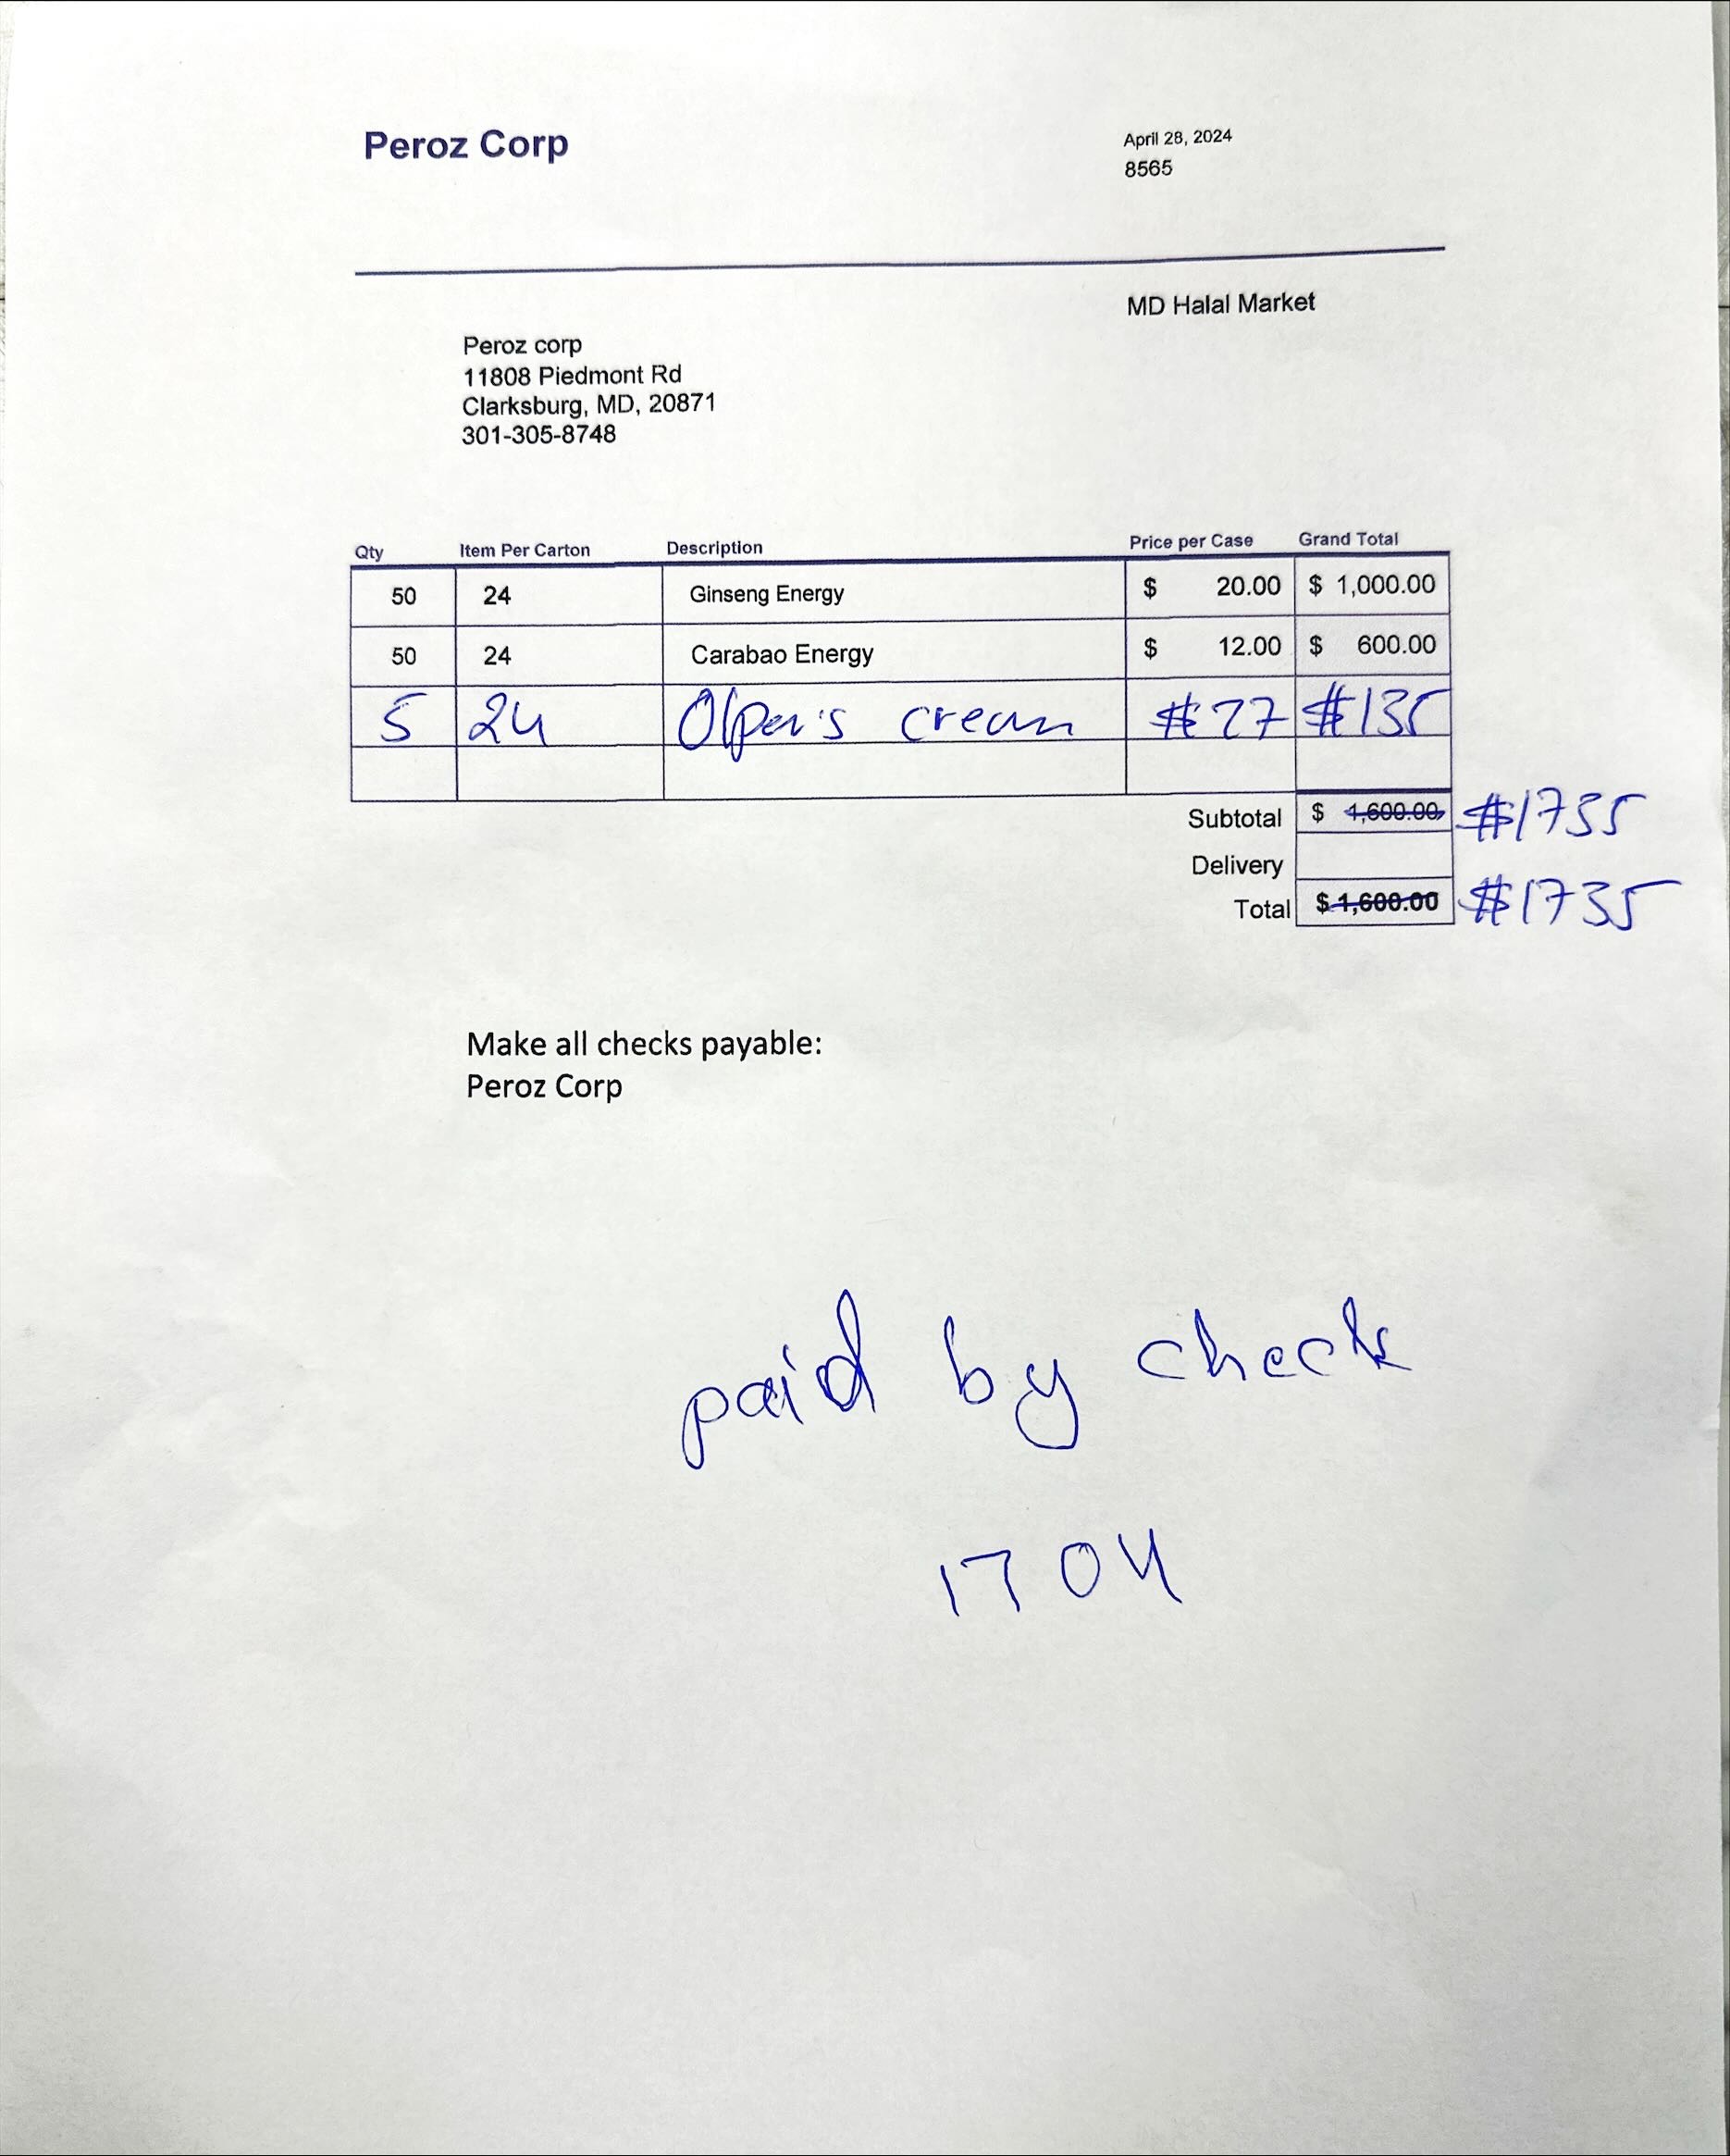 Peroz Corp
April 28, 2024
8565
MD Halal Market
Peroz corp
11808 Piedmont Rd
Clarksburg, MD, 20871
301-305-8748
Qty Item Per Carton Description Price per Case Grand Total
50 24 Ginseng Energy $ 20.00 $ 1,000.00
50 24 Carabao Energy $ 12.00 $ 600.00
5 24 Olper's cream $27 $135
Subtotal $ 1,600.00 $1735
Delivery
Total $ 1,600.00 $1735
Make all checks payable:
Peroz Corp
paid by check
1704